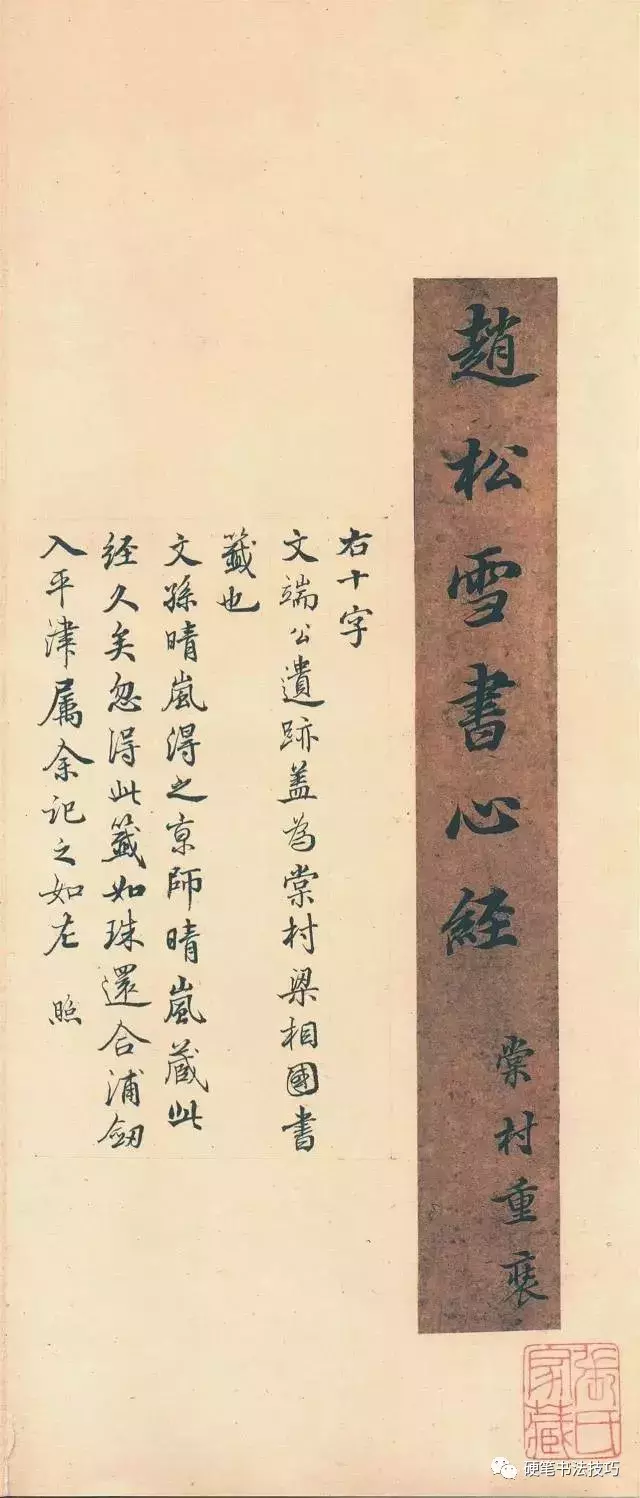 趙松雪書心經
棠村重裝
右十字
文端公遺跡盖為棠村梁相國書
籤也
文孫晴嵐得之京師晴嵐藏此
經久矣忽得此籤如珠還合浦劒
入平津属余記之如左 照
張氏
家藏
硬笔书法技巧